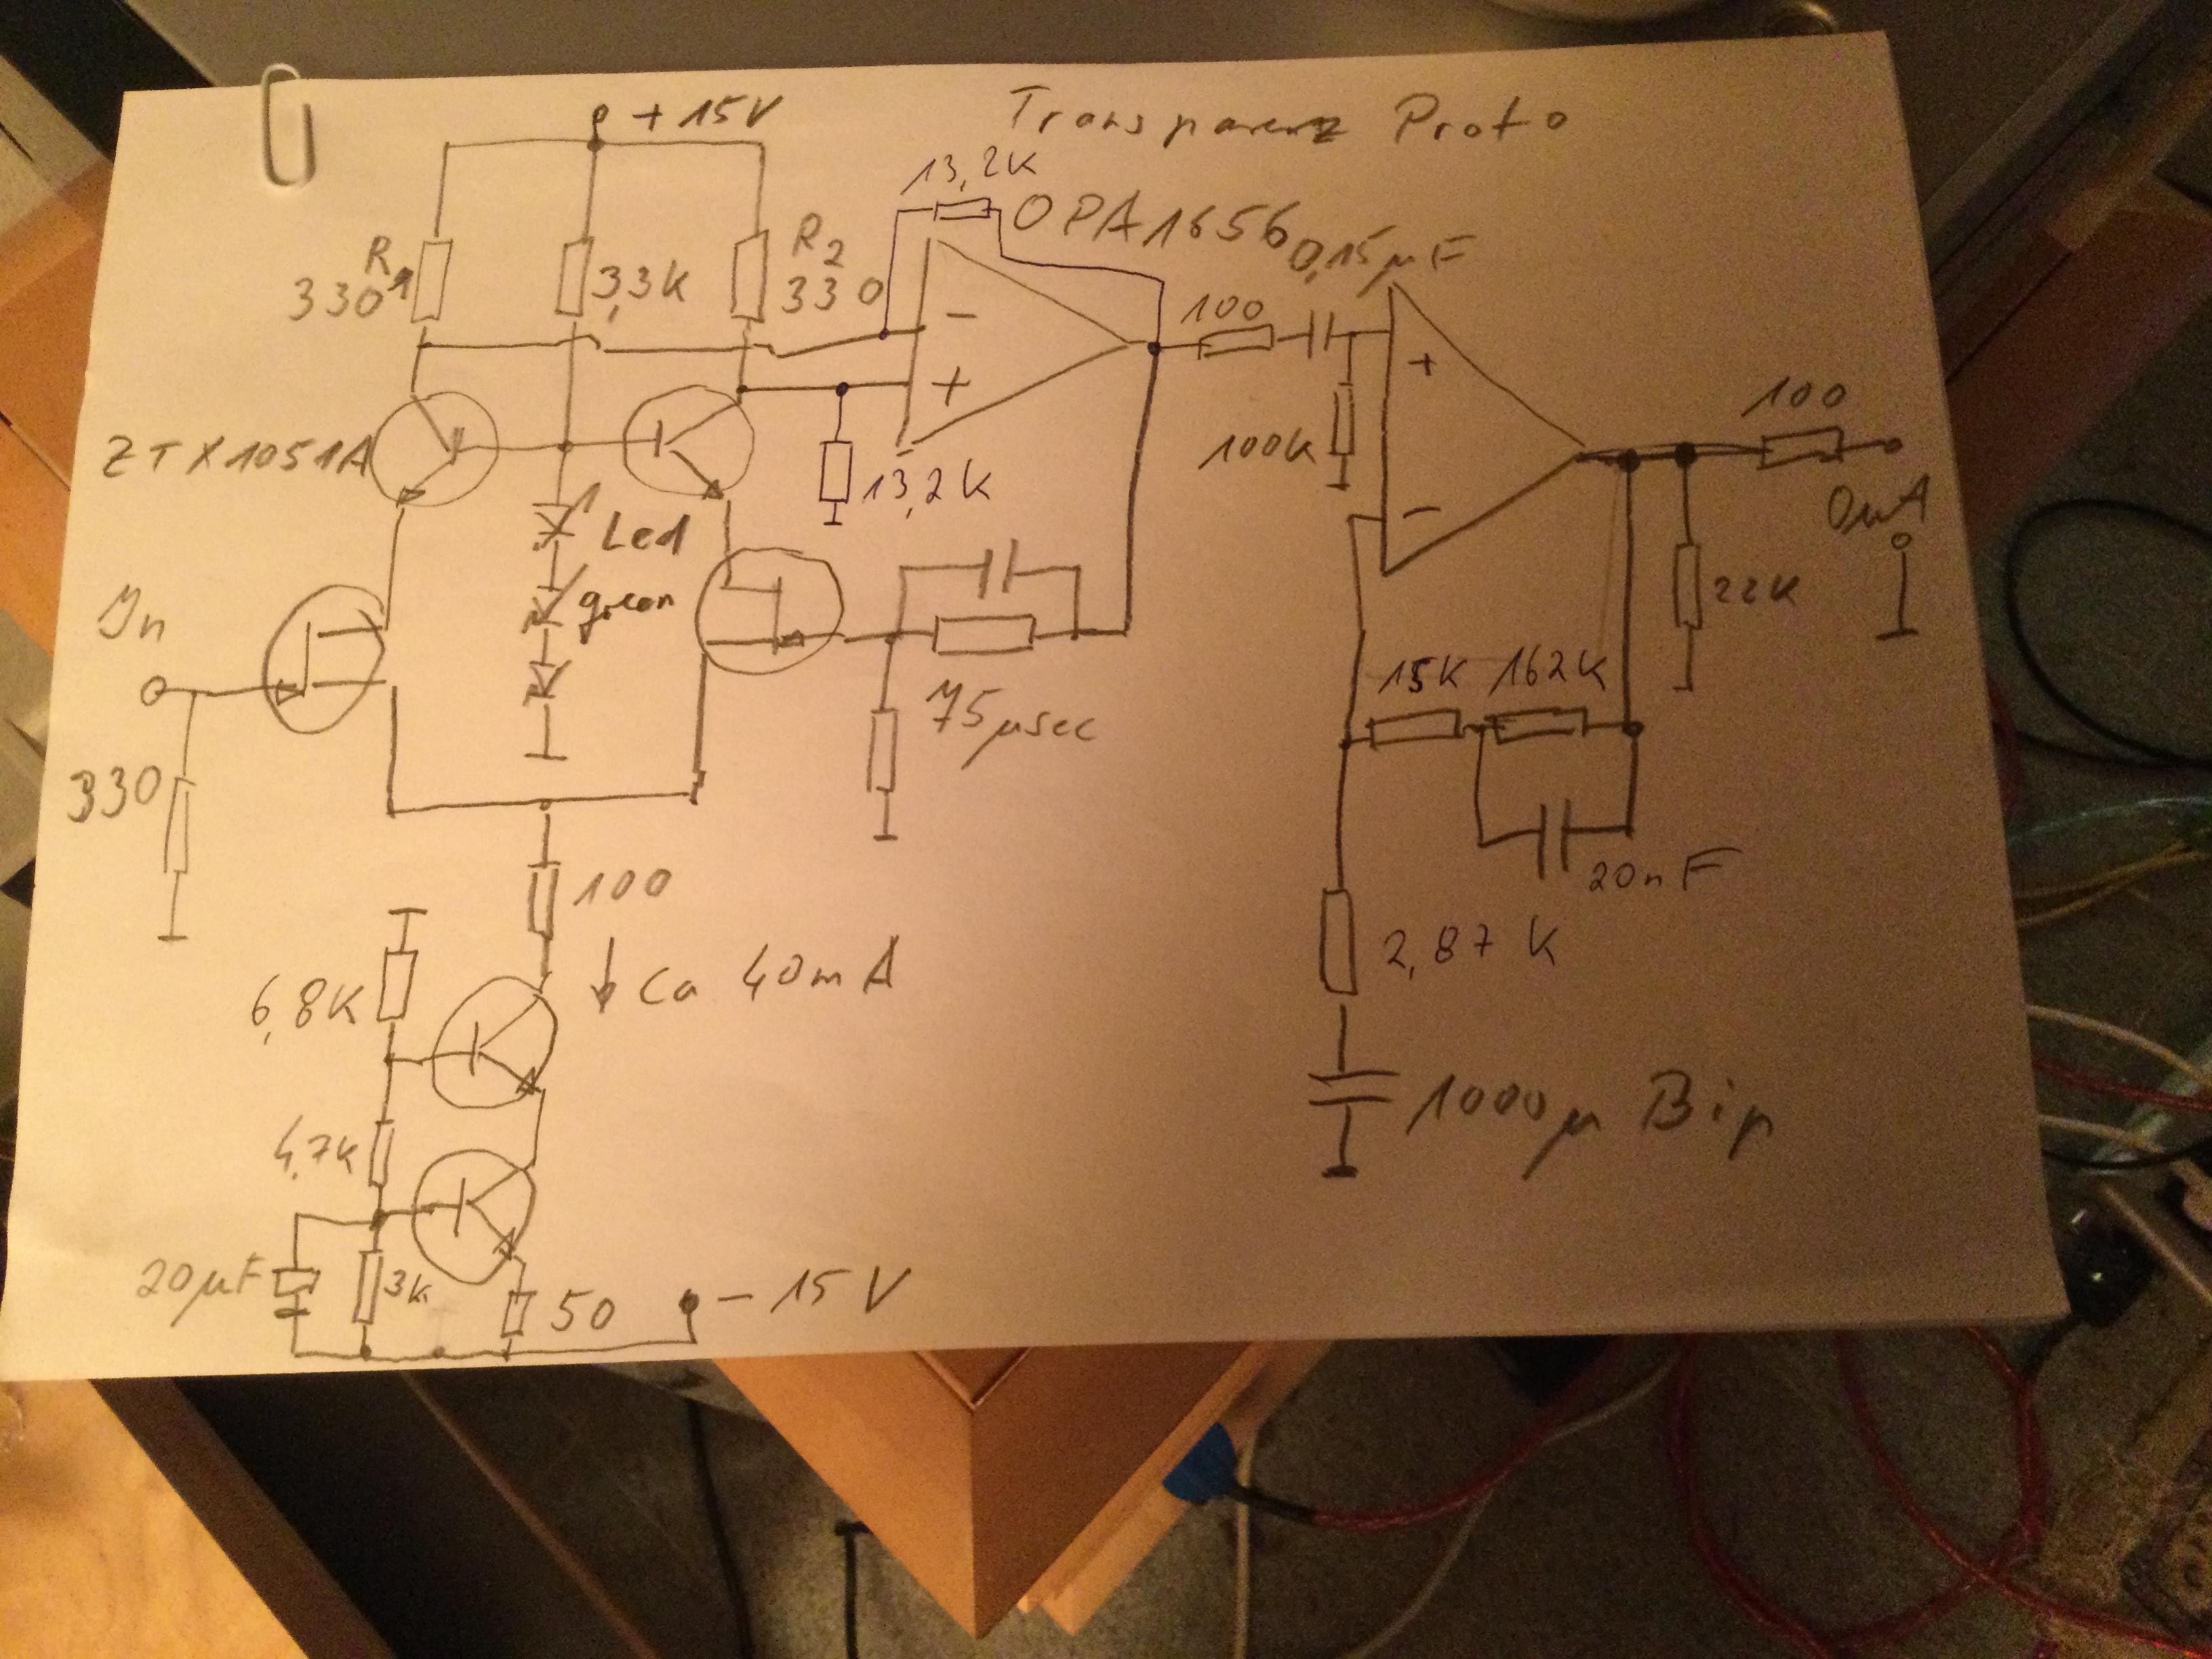 + 15V
Transparenz Proto
13,2K
OPA1656
0,15µF
R1
330
3,3K
R2
330
−
+
100
100K
+
−
100
ZTX1051A
13,2K
Led
green
OuA
22K
In
75µsec
15K
162K
330
20nF
100
Ca 40mA
2,87 K
6,8K
4,7K
1000µ Bip
20µF
3k
50
− 15 V